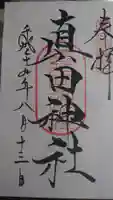 奉拝
真田神社
平成二十四年八月十三日